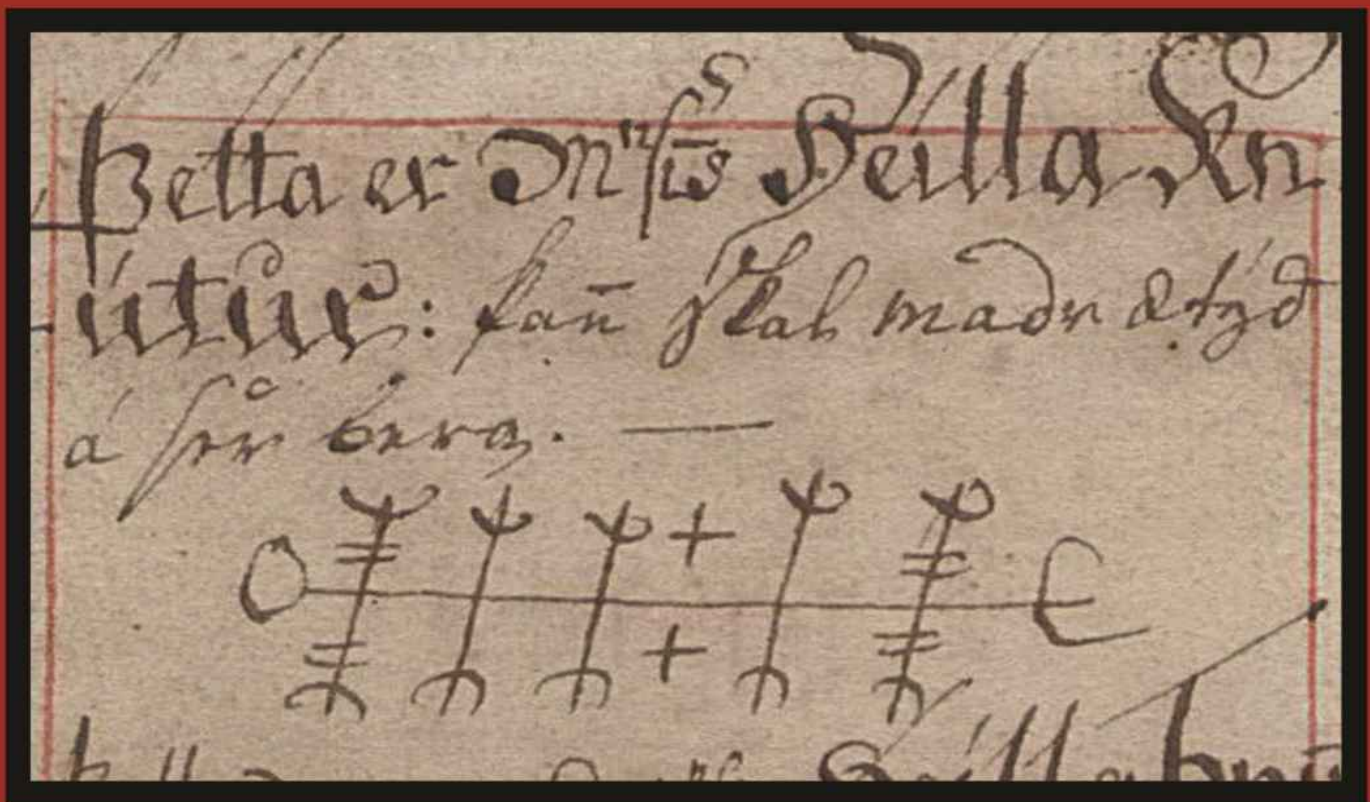 Þetta er Heilla Kn
útur: han̄ skal madr ætyd
á sier bera. —